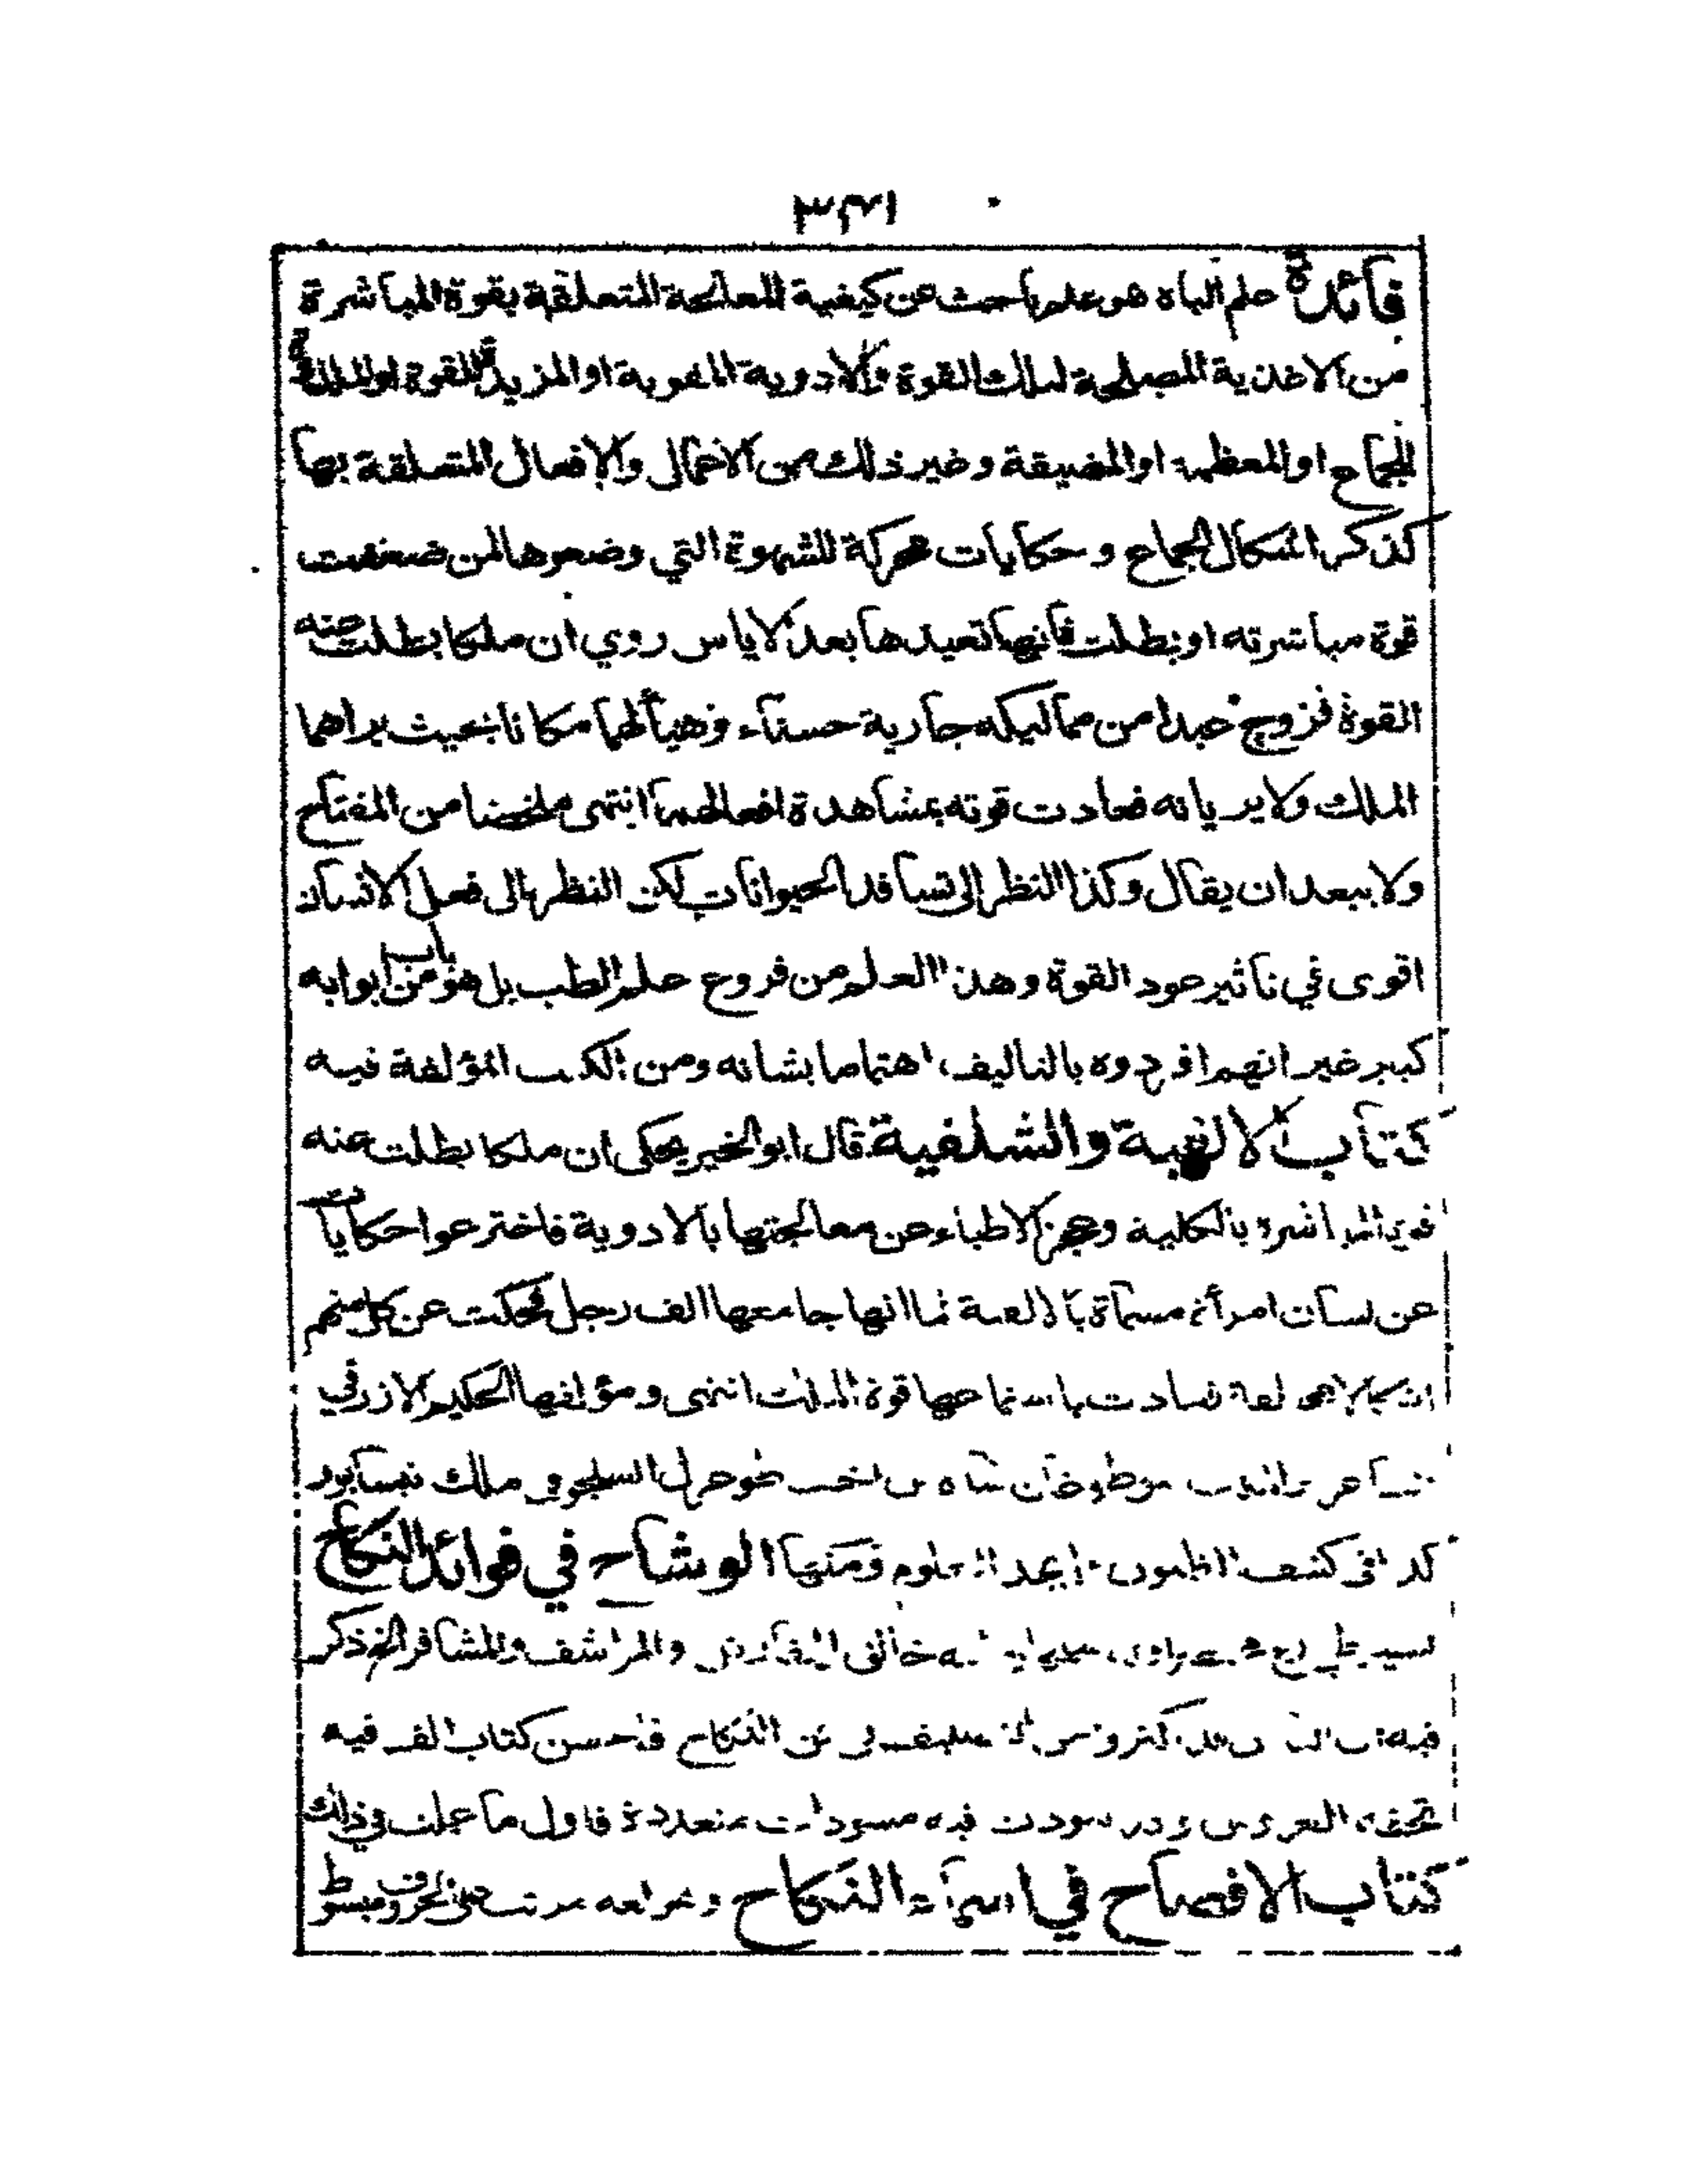 فائدة علم الباه هو علم باحث عن كيفية المعالجة المتعلقة بقوة المباشرة
من الاغذية المصلحة لتلك القوة والادوية المقوية او المزيدة للقوة او الملذذة
للجماع او المعظمة او المضيقة وغير ذلك من الاعمال والافعال المتعلقة بها
كذكر اشكال الجماع وحكايات محركة للشهوة التي وضعوها لمن ضعفت
قوة مباشرته او بطلت فانها تعيدها بعد الاياس روي ان ملكا بطلت عنه
القوة فزوج عبدا من مماليكه جارية حسناء وهيأ لهما مكانا بحيث يراهما
الملك ولا يريانه فعادت قوته بمشاهدة افعالهما انتهى ملخصا من المفتاح
ولا يبعد ان يقال وكذا النظر الى تسافد الحيوانات لكن النظر الى فعل الانسان
اقوى في تاثير عود القوة وهذا العلم من فروع علم الطب بل هو باب من ابوابه
كبير غير انهم افردوه بالتاليف اهتماما بشانه ومن الكتب المؤلفة فيه
كتاب الالفية والشلفية قال ابو الخير يحكى ان ملكا بطلت عنه
قوة المباشرة بالكلية وعجز الاطباء عن معالجتها بالادوية فاخترعوا حكايات
عن لسان امرأة مسماة بالالفية لما انها جامعها الف رجل فحكت عن كل منهم
فعادت باستماعها قوة الملك انتهى ومؤلفها الحكيم الازرقي
شاه طغرل السلجوقي ملك نيسابور
كذا في كشف الظنون وابجد العلوم ومنها الوشاح في فوائد النكاح
خالق والمراشف والمشافر الخ ذكر
فيه النكاح فاحسن كتاب الف فيه
تحفة العروس وقد سودت فيه مسودات متعددة فاول ما عملت في ذلك
كتاب الافصاح في اسماء النكاح مرتب على الحروف مبسوط